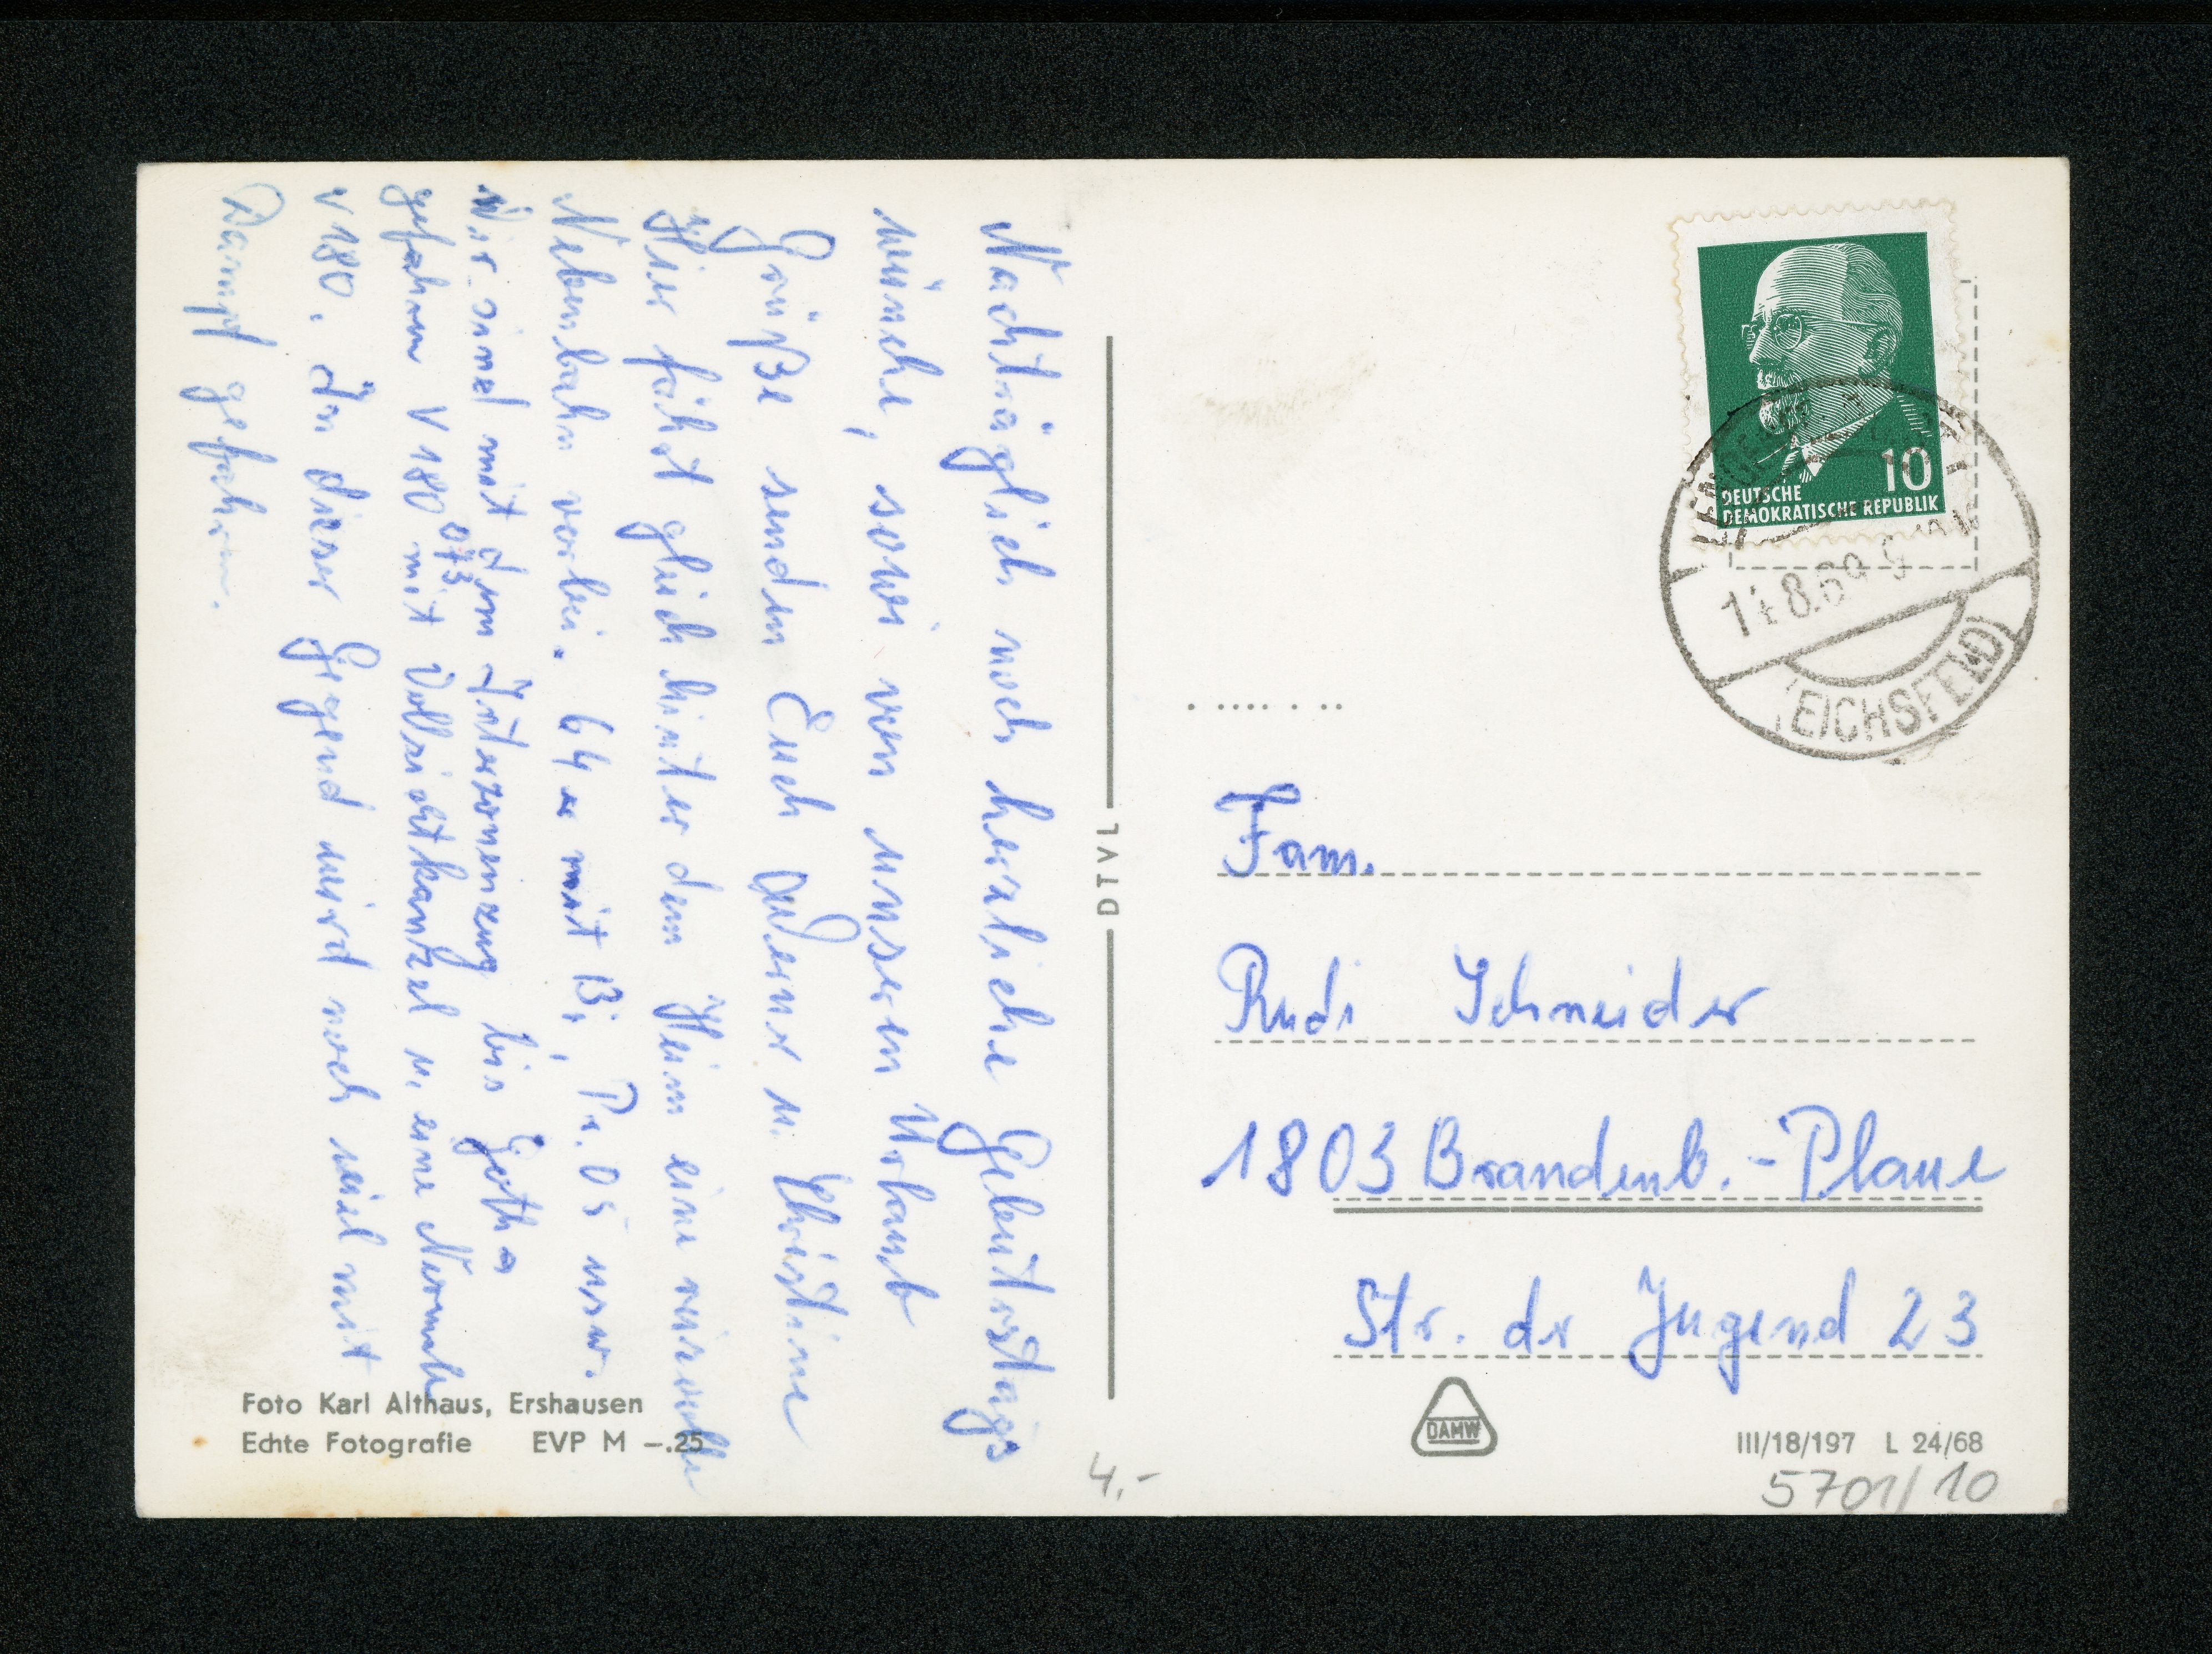 Nachträglich noch herzliche Geburtstags
wünche, sowie von unseren Urlaub
Grüße senden Euch Werner u. Christine
Hier fährt gleich hinter dem Heim eine reizvolle
Nebenbahn vorbei. 64er mit Bi, Pr. 05 usw.
Wir sind mit dem Interzonenzug bis Gotha
gefahren V 180 mit Vollsichtkanzel u. eine
073
V 180. In dieser Gegend wird noch viel mit
Dampf gefahren.
Foto Karl Althaus, Ershausen
Echte Fotografie EVP M –.25
DTVL
10
DEUTSCHE
DEMOKRATISCHE REPUBLIK
14.8.69
EICHSFELD
Fam.
Rudi Schneider
1803 Brandenb.-Plaue
Str. dr Jugend 23
DAMW
III/18/197 L 24/68
4,-
5701/10